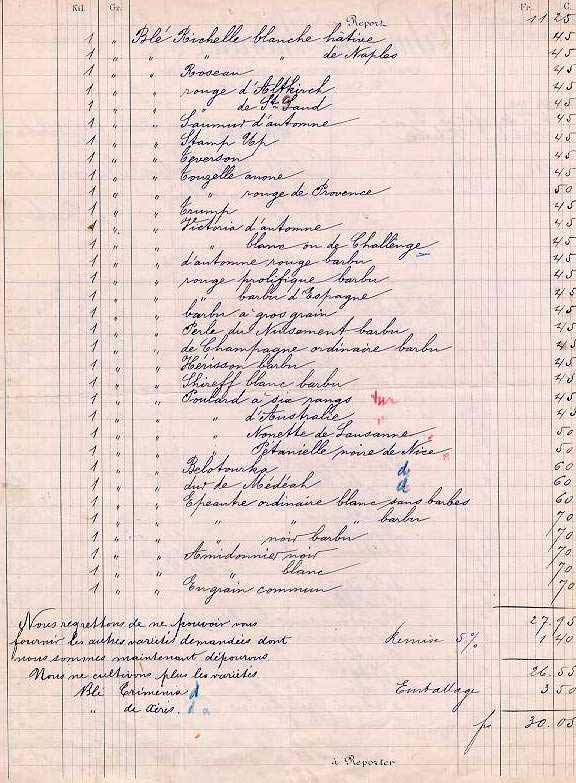 Kil. Gr. Fr. C.
Report 11 25
1 " Blé Richelle blanche hative 45
1 " " " " de Naples 45
1 " " Roseau 45
1 " " rouge d'Altkirch 45
1 " " " de St Laud 45
1 " " Saumur d'automne 45
1 " " Stamp Up 45
1 " " Teverson 45
1 " " Touzelle anone 45
1 " " " rouge de Provence 50
1 " " Trump 45
1 " " Victoria d'automne 45
1 " " " blanc ou de Challenge 45
1 " " d'automne rouge barbu 45
1 " " rouge prolifique barbu 45
1 " " " barbu d'Espagne 45
1 " " barbu à gros grain 45
1 " " Perle du Nuisement barbu 45
1 " " de Champagne ordinaire barbu 45
1 " " Hérisson barbu 45
1 " " Shireff blanc barbu 45
1 " " Poulard à six rangs tur 45
1 " " " d'Australie " 45
1 " " " Nonette de Lausanne " 50
1 " " " Pétanielle noire de Nice " 50
1 " " Belotourka d 60
1 " " dur de Médéah d 60
1 " " Epeautre ordinaire blanc sans barbes 60
1 " " " " " barbu 70
1 " " " noir barbu 70
1 " " Amidonnier noir 70
1 " " " blanc 70
1 " " Engrain commun 70
27.95
Nous regrettons de ne pouvoir vous
fournir les autres variétés demandées dont Remise 5% 1 40
nous sommes maintenant dépourvus
26.55
Nous ne cultivons plus les variétés
Blé Criménia d Emballage 3 50
" de Xérès. d a
fr 30.05
à Reporter